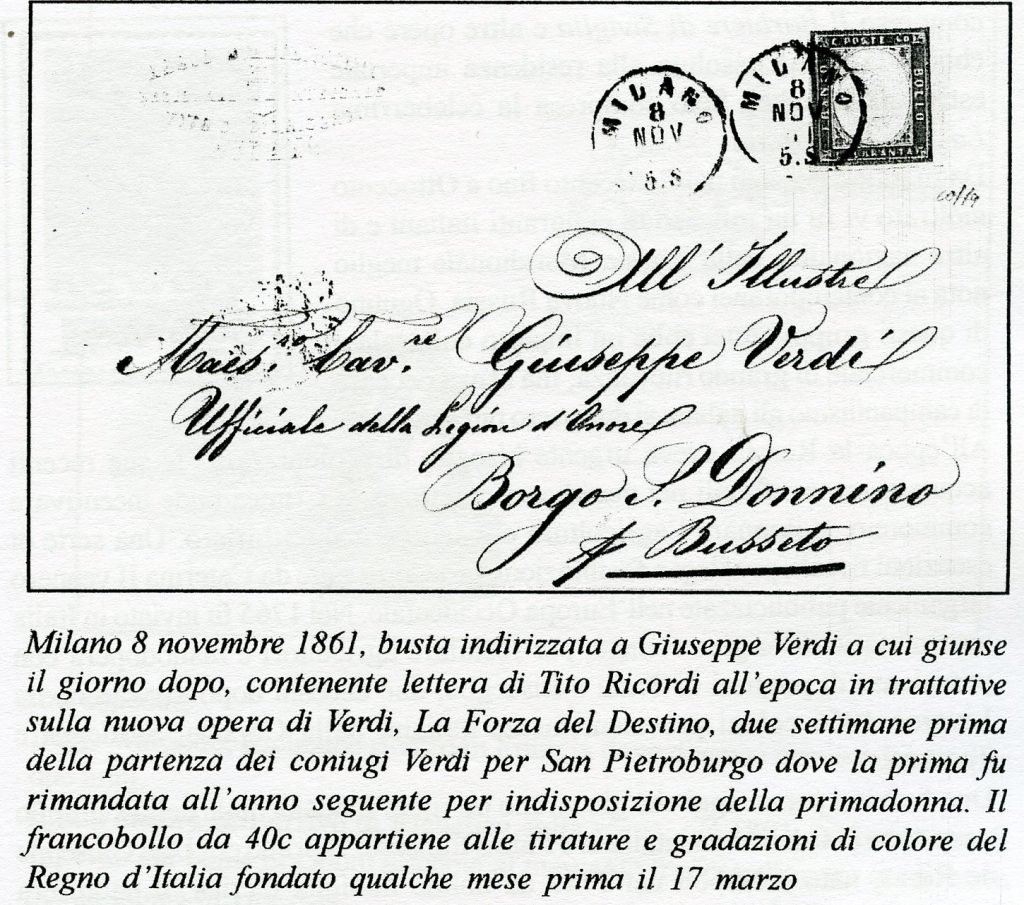 MILANO
8
NOV
5.S
MILANO
8
NOV
5.S
C. POSTE COL
FRANCO
BOLLO
All' Illustre
Maes.ro Cav.re Giuseppe Verdi
Ufficiale della Legion d'Onore
Borgo S. Donnino
Busseto
Milano 8 novembre 1861, busta indirizzata a Giuseppe Verdi a cui giunse
il giorno dopo, contenente lettera di Tito Ricordi all'epoca in trattative
sulla nuova opera di Verdi, La Forza del Destino, due settimane prima
della partenza dei coniugi Verdi per San Pietroburgo dove la prima fu
rimandata all'anno seguente per indisposizione della primadonna. Il
francobollo da 40c appartiene alle tirature e gradazioni di colore del
Regno d'Italia fondato qualche mese prima il 17 marzo